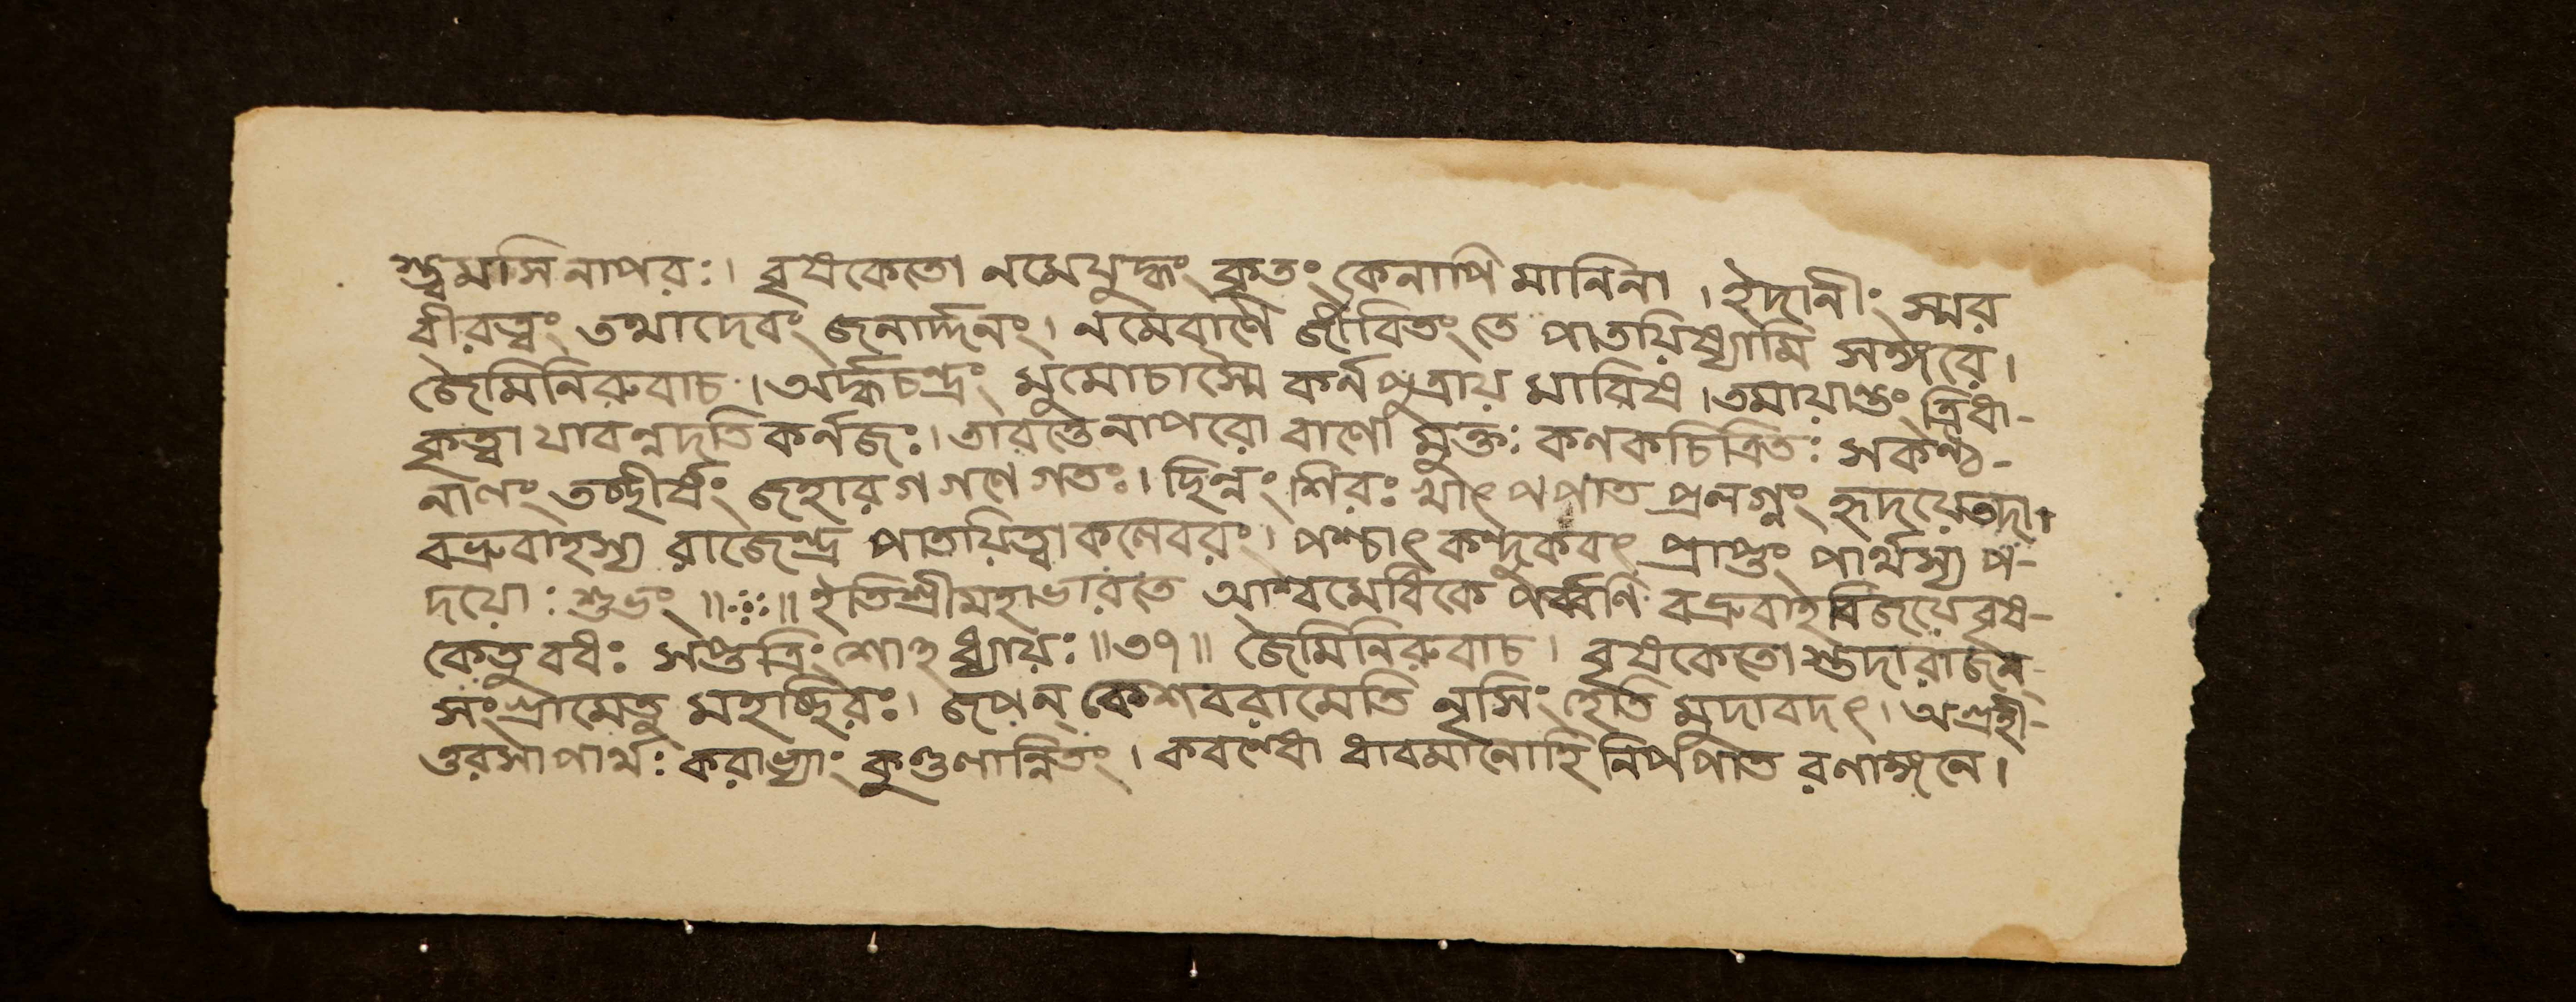 শ্ত্বমসি নাপরঃ। বৃষকেতো নমেযুদ্ধং কৃতং কেনাপি মানিনা। ইদানীং স্মর
বীরত্বং তথাদেবং জনার্দ্দনং। নমেবাণে জীবিতং তে পাতয়িষ্যামি সঙ্গরে।
জৈমিনিরুবাচ। অর্দ্ধচন্দ্রং মুমোচাস্মৈ কর্নপুত্রায় মারিষ। তমায়ান্তং ত্রিধা-
কৃত্বা যাবন্নদতি কর্নজঃ। তাবত্তেনাপরো বাণো মুক্তঃ কণকচিত্রিতঃ সকণ্ঠ-
নালং তচ্ছীর্ষং জহার গগণে গতঃ। ছিন্নং শিরঃ খাৎ পপাত প্রলগ্নং হৃদয়েতদা।
বভ্রুবাহস্য রাজেন্দ্র পাতয়িত্বা কলেবরং। পশ্চাৎ কন্দুকবৎ প্রাপ্তং পার্থস্য প-
দয়োঃ শুভং॥ঃ॥ ইতিশ্রীমহাভারতে আশ্বমেধিকে পর্ব্বণি বভ্রুবাহবিজয়ে বৃষ-
কেতুবধঃ সপ্তত্রিংশোঽধ্যায়ঃ॥৩৭॥ জৈমিনিরুবাচ। বৃষকেতো শ্তদারাজন্
সংগ্রামেতু মহচ্ছিরঃ। জপন্ কেশবরামেতি নৃসিংহেতি মুদাবদৎ। অগ্রহী-
ত্তরসাপার্থঃ করাভ্যাং কুণ্ডলান্বিতং। কবন্ধো ধাবমানোহি নিপপাত রণাঙ্গনে।